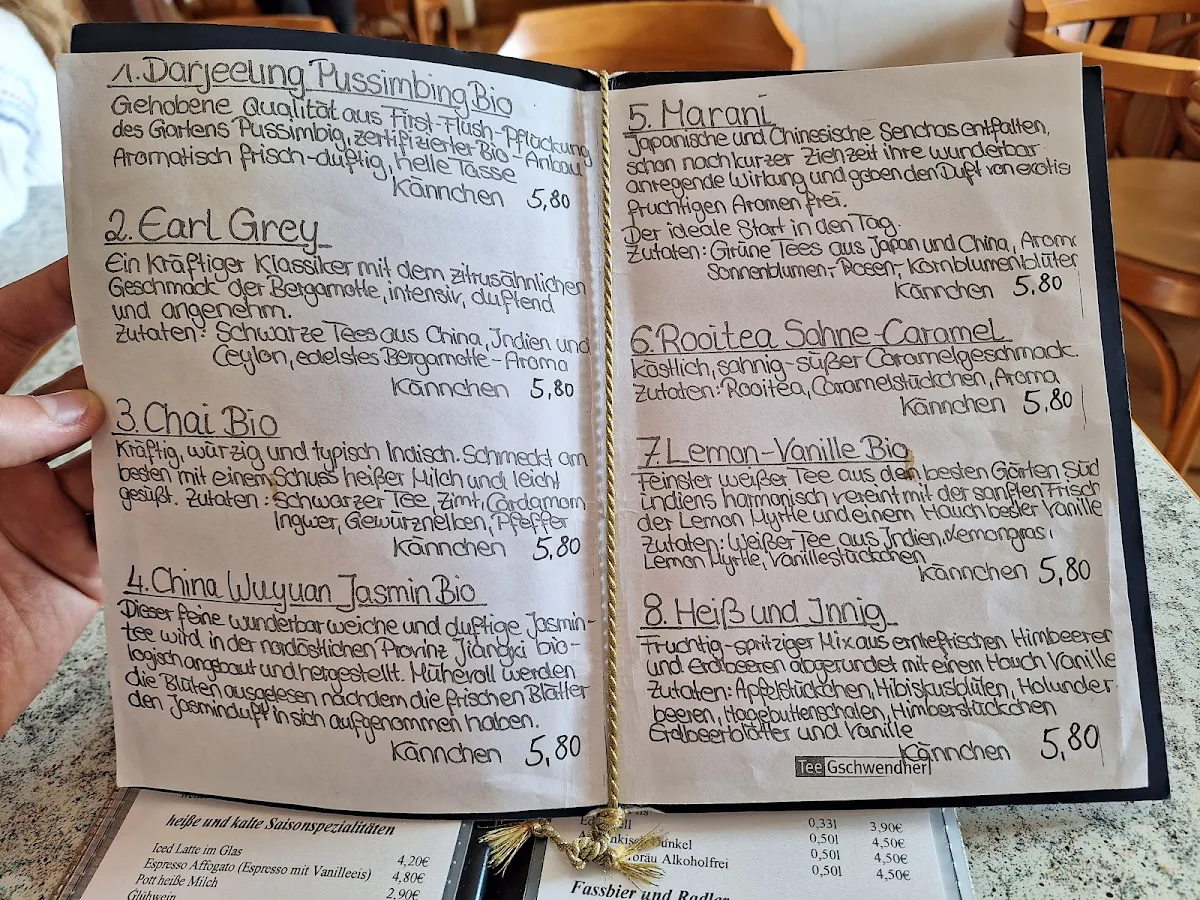 1. Darjeeling Pussimbing Bio
Gehobene Qualität aus First-Flush-Pflückung
des Gartens Pussimbig, zertifizierter Bio-Anbau
Aromatisch frisch-duftig, helle Tasse
Kännchen 5,80
2. Earl Grey
Ein kräftiger Klassiker mit dem zitrusähnlichen
Geschmack der Bergamotte, intensiv, duftend
und angenehm.
Zutaten: Schwarze Tees aus China, Indien und
Ceylon, edelstes Bergamotte-Aroma
Kännchen 5,80
3. Chai Bio
Kräftig, würzig und typisch Indisch. Schmeckt am
besten mit einem Schuss heißer Milch und leicht
gesüßt. Zutaten: Schwarzer Tee, Zimt, Cardamom
Ingwer, Gewürznelken, Pfeffer
Kännchen 5,80
4. China Wuyuan Jasmin Bio
Dieser feine wunderbar weiche und duftige Jasmin-
tee wird in der nordöstlichen Provinz Jiangxi bio-
logisch angbaut und hergestellt. Mühevoll werden
die Blüten ausgelesen nachdem die frischen Blätter
den Jasminduft in sich aufgenommen haben.
Kännchen 5,80
5. Marani
Japanische und Chinesische Senchas entfalten,
schon nach kurzer Ziehzeit ihre wunderbar
anregende Wirkung und geben den Duft von exotis
fruchtigen Aromen frei.
Der ideale Start in den Tag.
Zutaten: Grüne Tees aus Japan und China, Aroma
Sonnenblumen-, Rosen-, Kornblumenblüten
Kännchen 5,80
6. Rooitea Sahne-Caramel
köstlich, sahnig-süßer Caramelgeschmack.
Zutaten: Rooitea, Caramelstückchen, Aroma
Kännchen 5,80
7. Lemon-Vanille Bio
Feinster weißer Tee aus den besten Gärten Süd
indiens harmonisch vereint mit der sanften Frisch
der Lemon Myrtle und einem Hauch bester Vanille
Zutaten: Weißer Tee aus Indien, Lemongras,
Lemon Myrtle, Vanillestückchen
Kännchen 5,80
8. Heiß und Innig
Fruchtig-spritziger Mix aus erntefrischen Himbeeren
und Erdbeeren abgerundet mit einem Hauch Vanille
Zutaten: Apfelstückchen, Hibiskusblüten, Holunder-
beeren, Hagebuttenschalen, Himberstückchen
Erdbeerblätter und Vanille
Kännchen 5,80
Tee Gschwendner
heiße und kalte Saisonspezialitäten
Iced Latte im Glas 4,20€
Espresso Affogato (Espresso mit Vanilleeis) 4,80€
Pott heiße Milch 2,90€
Glühwein
0,33l 3,90€
0,50l 4,50€
0,50l 4,50€
Alkoholfrei 0,50l 4,50€
Fassbier und Radler